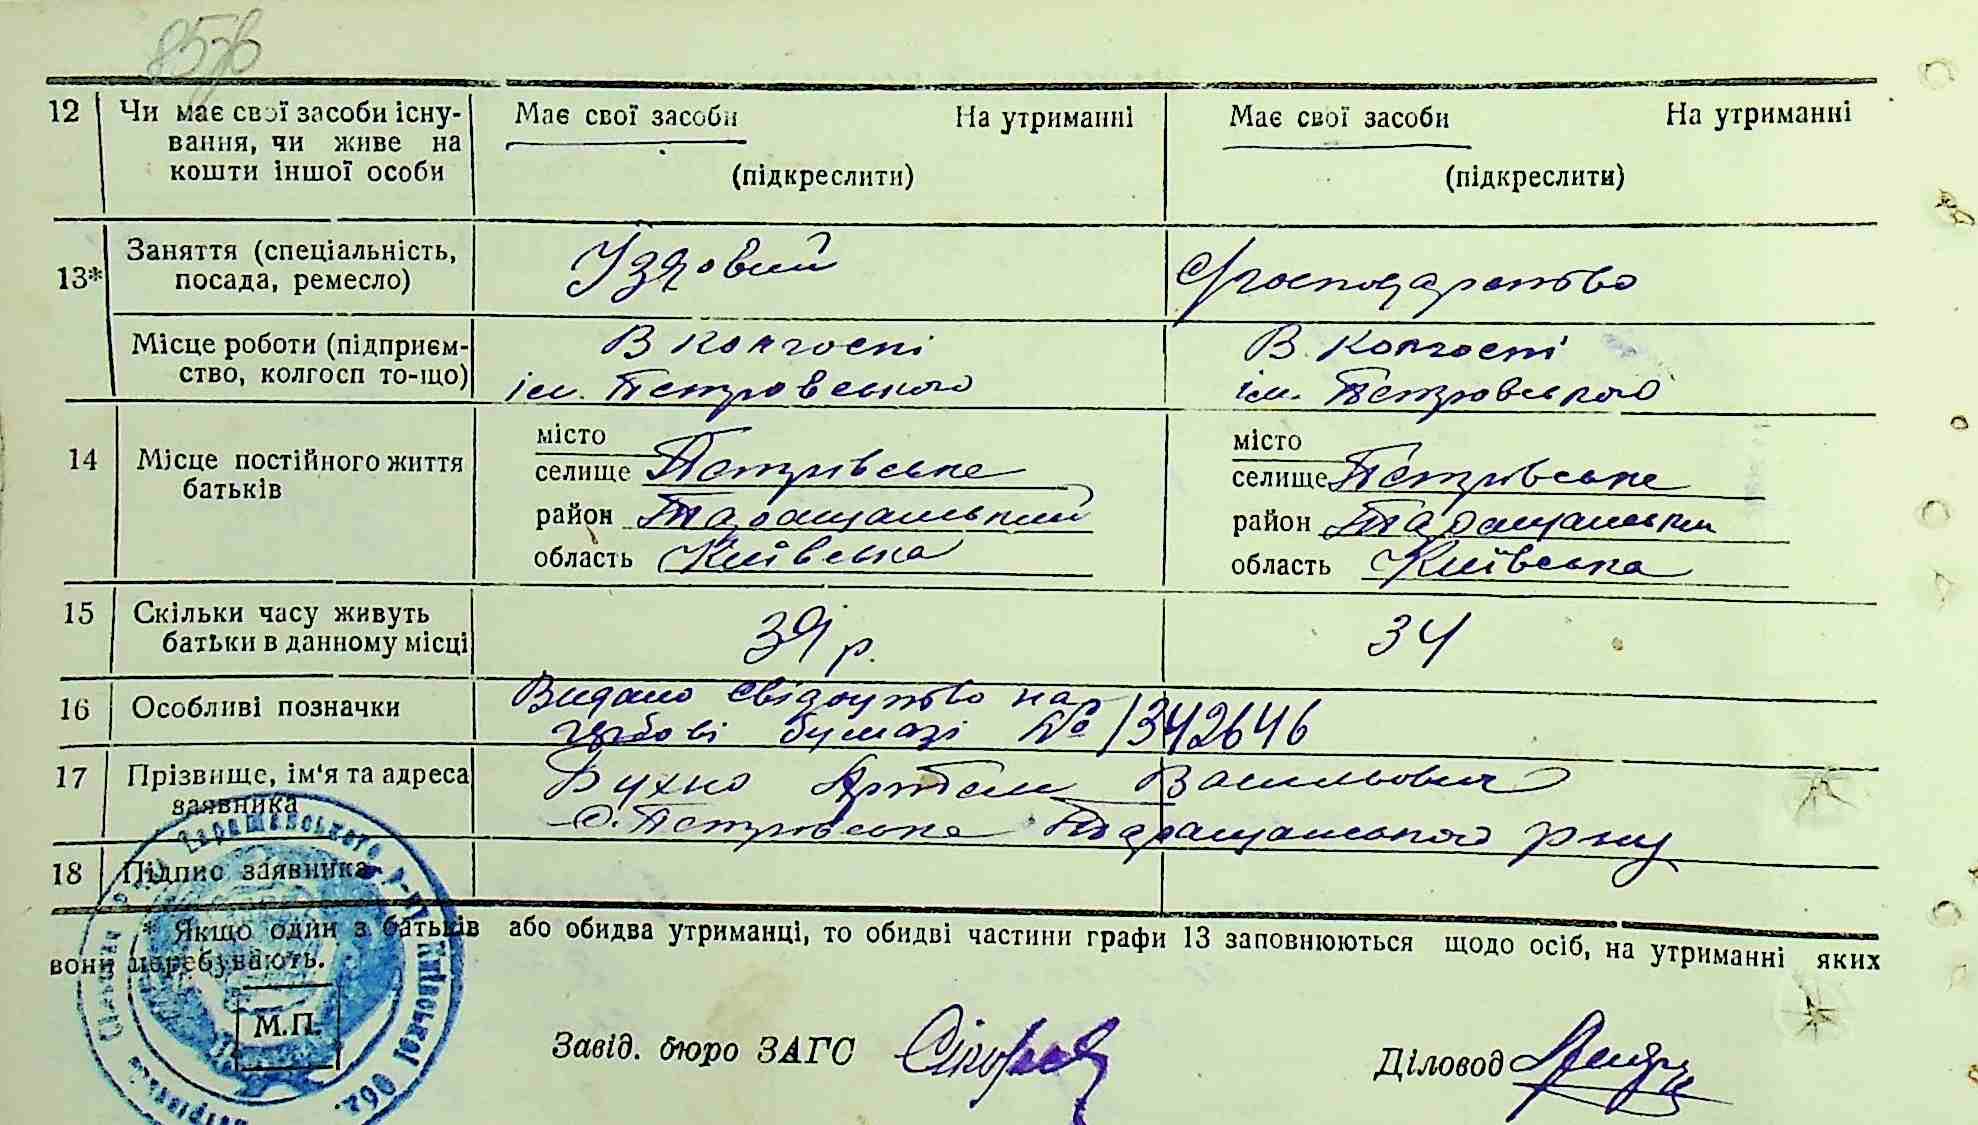 12 Чи має свої засоби існу- Має свої засоби На утриманні Має свої засоби На утриманні
вання, чи живе на
кошти іншої особи (підкреслити) (підкреслити)
13* Заняття (спеціальність, Їздовий Господарство
посада, ремесло)
Місце роботи (підприєм- В колгоспі В колгоспі
ство, колгосп то-що) ім. Петровського ім. Петровського
14 Місце постійного життя місто місто
батьків селище Петрівське селище Петрівське
район Таращанський район Таращанський
область Київська область Київська
15 Скільки часу живуть 39 р. 34
батьки в данному місці
16 Особливі позначки Видано свідоцтво на
гербові бумазі № 1342646
17 Прізвище, ім'я та адреса Бухно Артем Васильович
заявника с. Петрівське Таращанського р-ну
18 Підпис заявника
* Якщо один з батьків або обидва утриманці, то обидві частини графи 13 заповнюються щодо осіб, на утриманні яких
вони перебувають.
М.П. Завід. бюро ЗАГС Діловод
Таращанського р-ну Київської Обл.